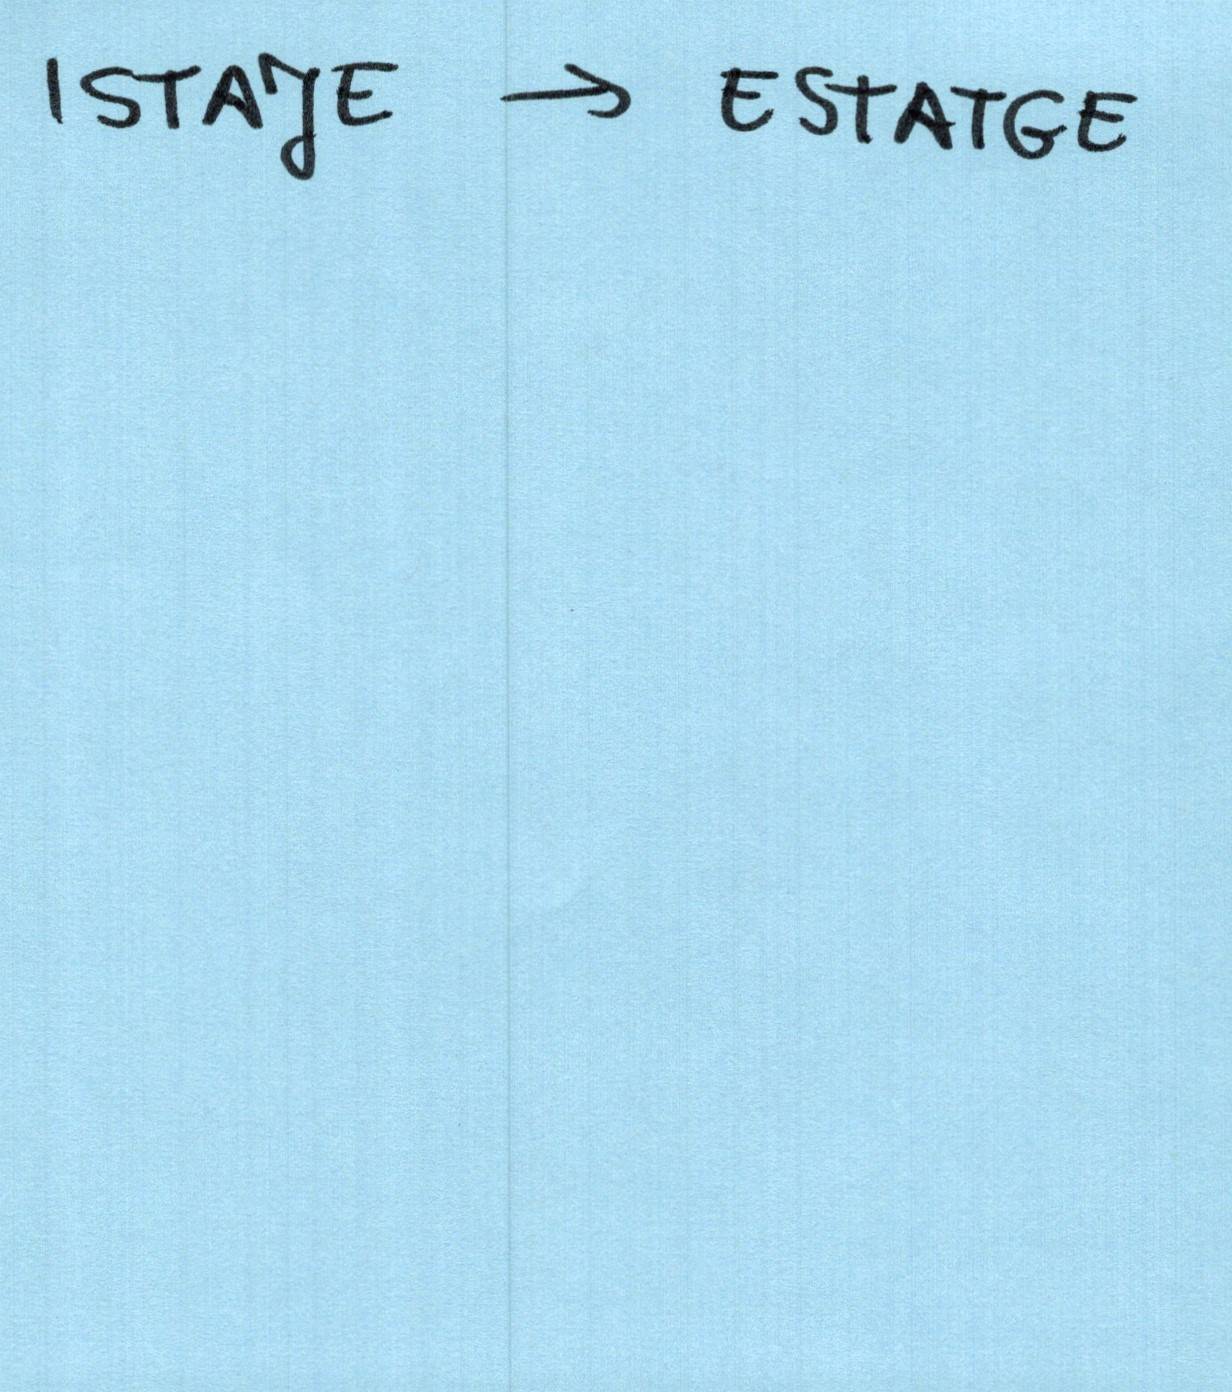 ISTAJE → ESTATGE